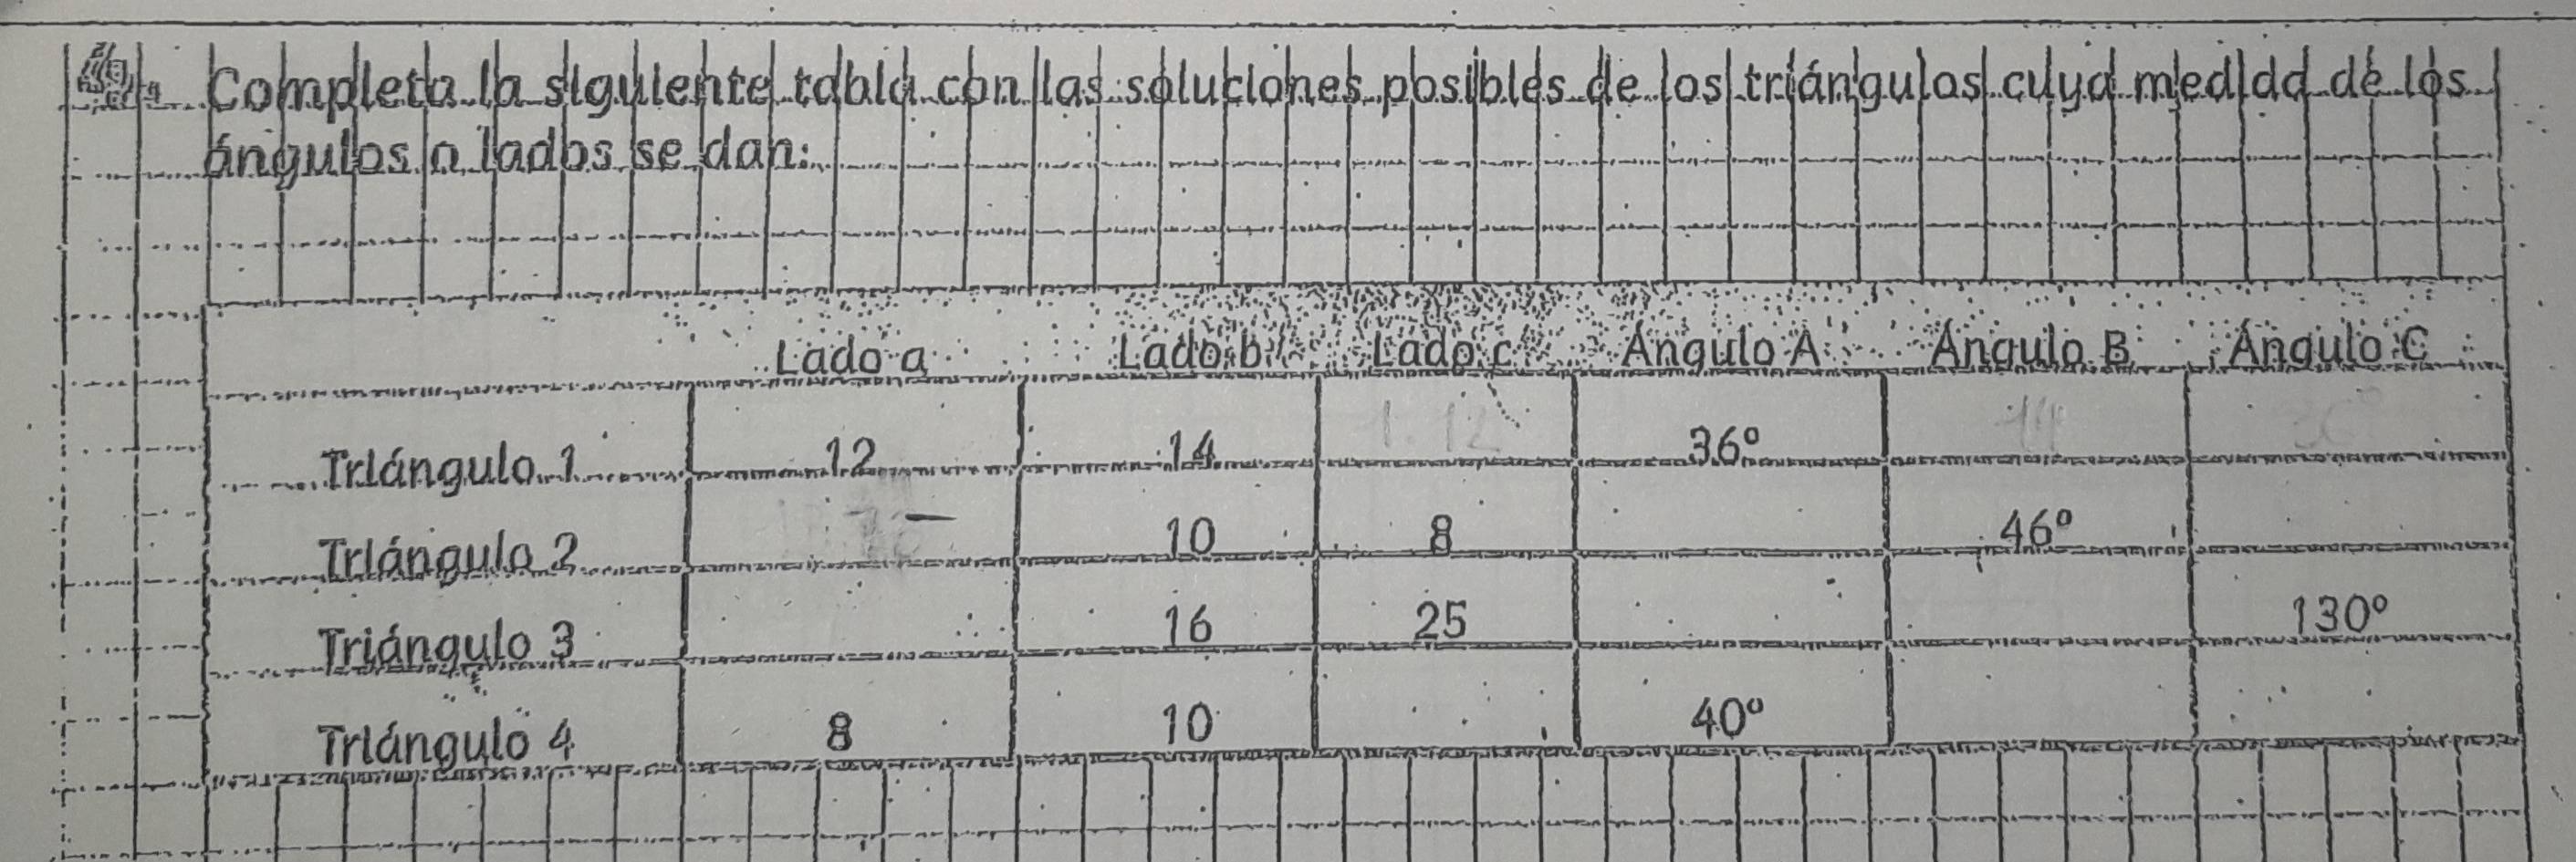 Completa la siguiente tabla con las soluciones posibles de los triángulos cuya medida de los
ángulos o lados se dan:
Lado a Lado b Lado c Ángulo A Ángulo B Ángulo C
Triángulo 1 12 14 36°
Triángulo 2 10 8 46°
Triángulo 3 16 25 130°
Triángulo 4 8 10 40°